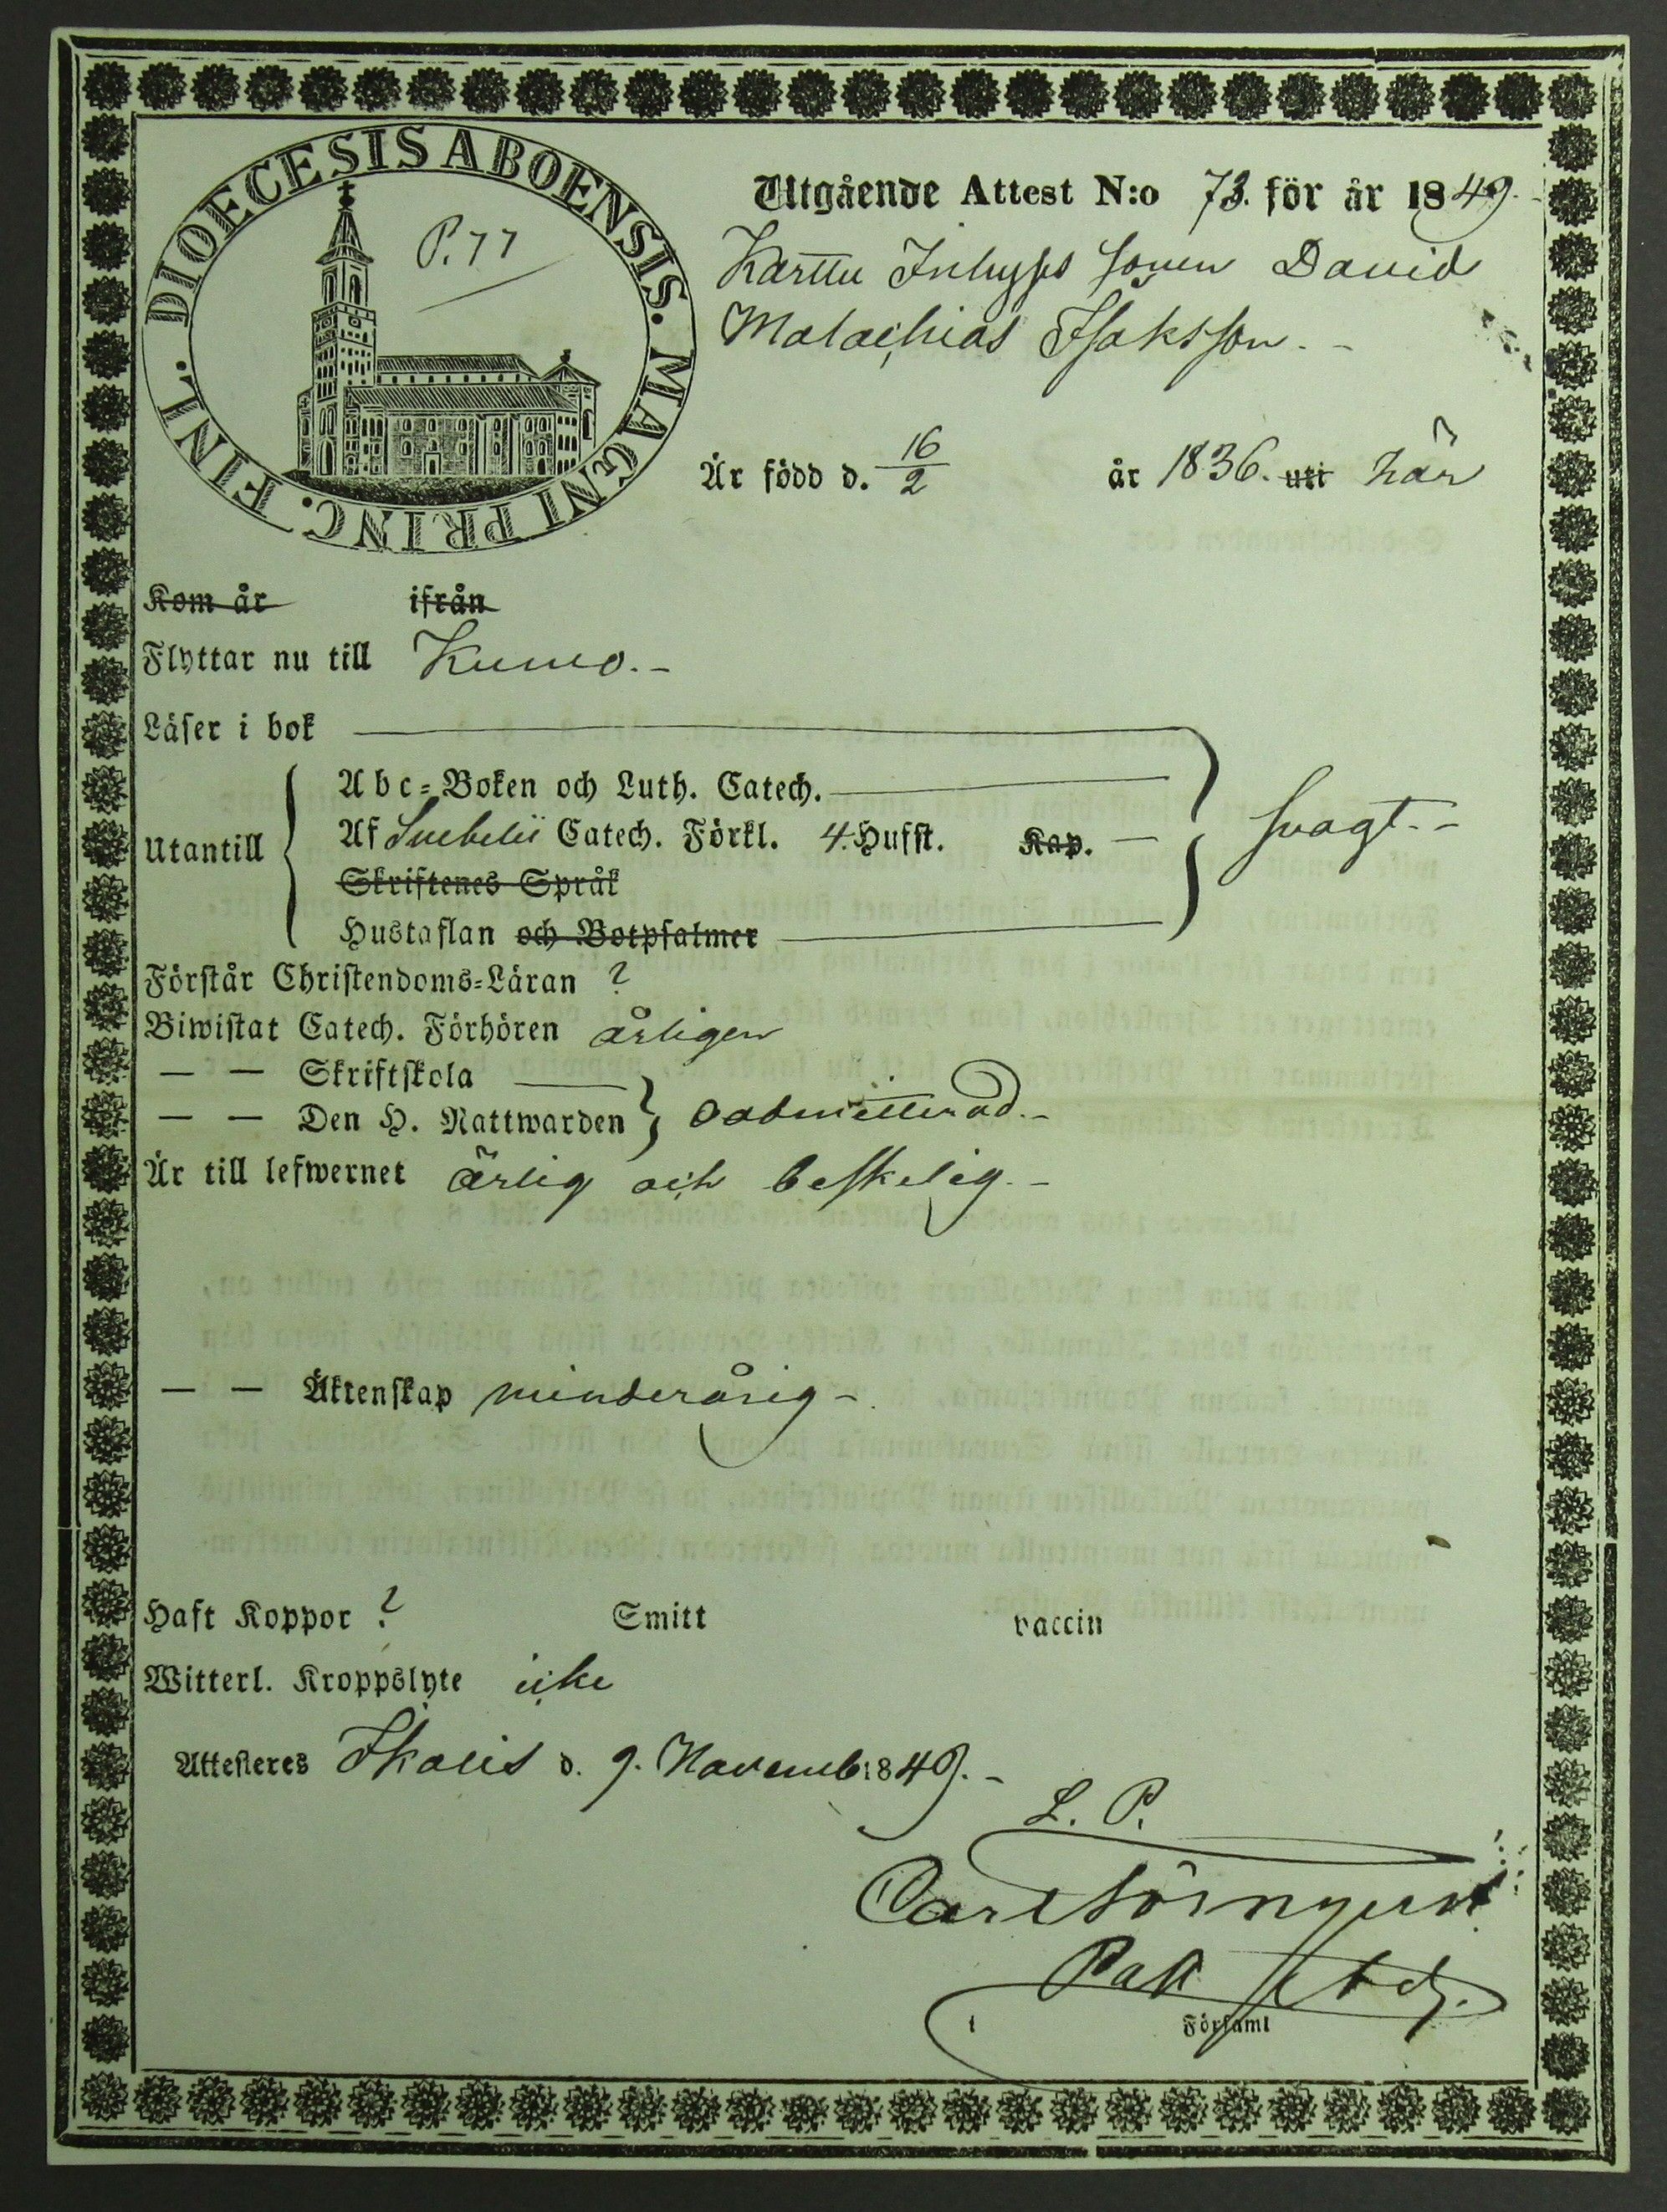 DIOECESIS ABOENSIS. MAGNI PRINC. FINL.
P. 77
Utgående Attest N:o 73. för år 1849.
Karttu Inhyses sonen David
Malachias Isaksson.
Är född d. 16/2 år 1836. uti här
Kom år ifrån
Flyttar nu till Kumo.
Läser i bok
Utantill
Abc-Boken och Luth. Catech.
Af Svebelii Catech. Förkl. 4. Hufst. Kap. — svagt.
Skriftenes Språk
Hustaflan och Botpsalmer
Förstår Christendoms-Läran ?
Biwistat Catech. Förhören årligen
— — Skriftskola
— — Den H. Nattwarden } oadmitterad.
Är till lefwernet ärlig och beskelig.
— — Äktenskap minderårig
Haft Koppor ? Smitt vaccin
Witterl. Kroppslyte icke
Attesteres Ikalis d. 9. Novemb 1849.
L. P.
Carl
Past
i Församl